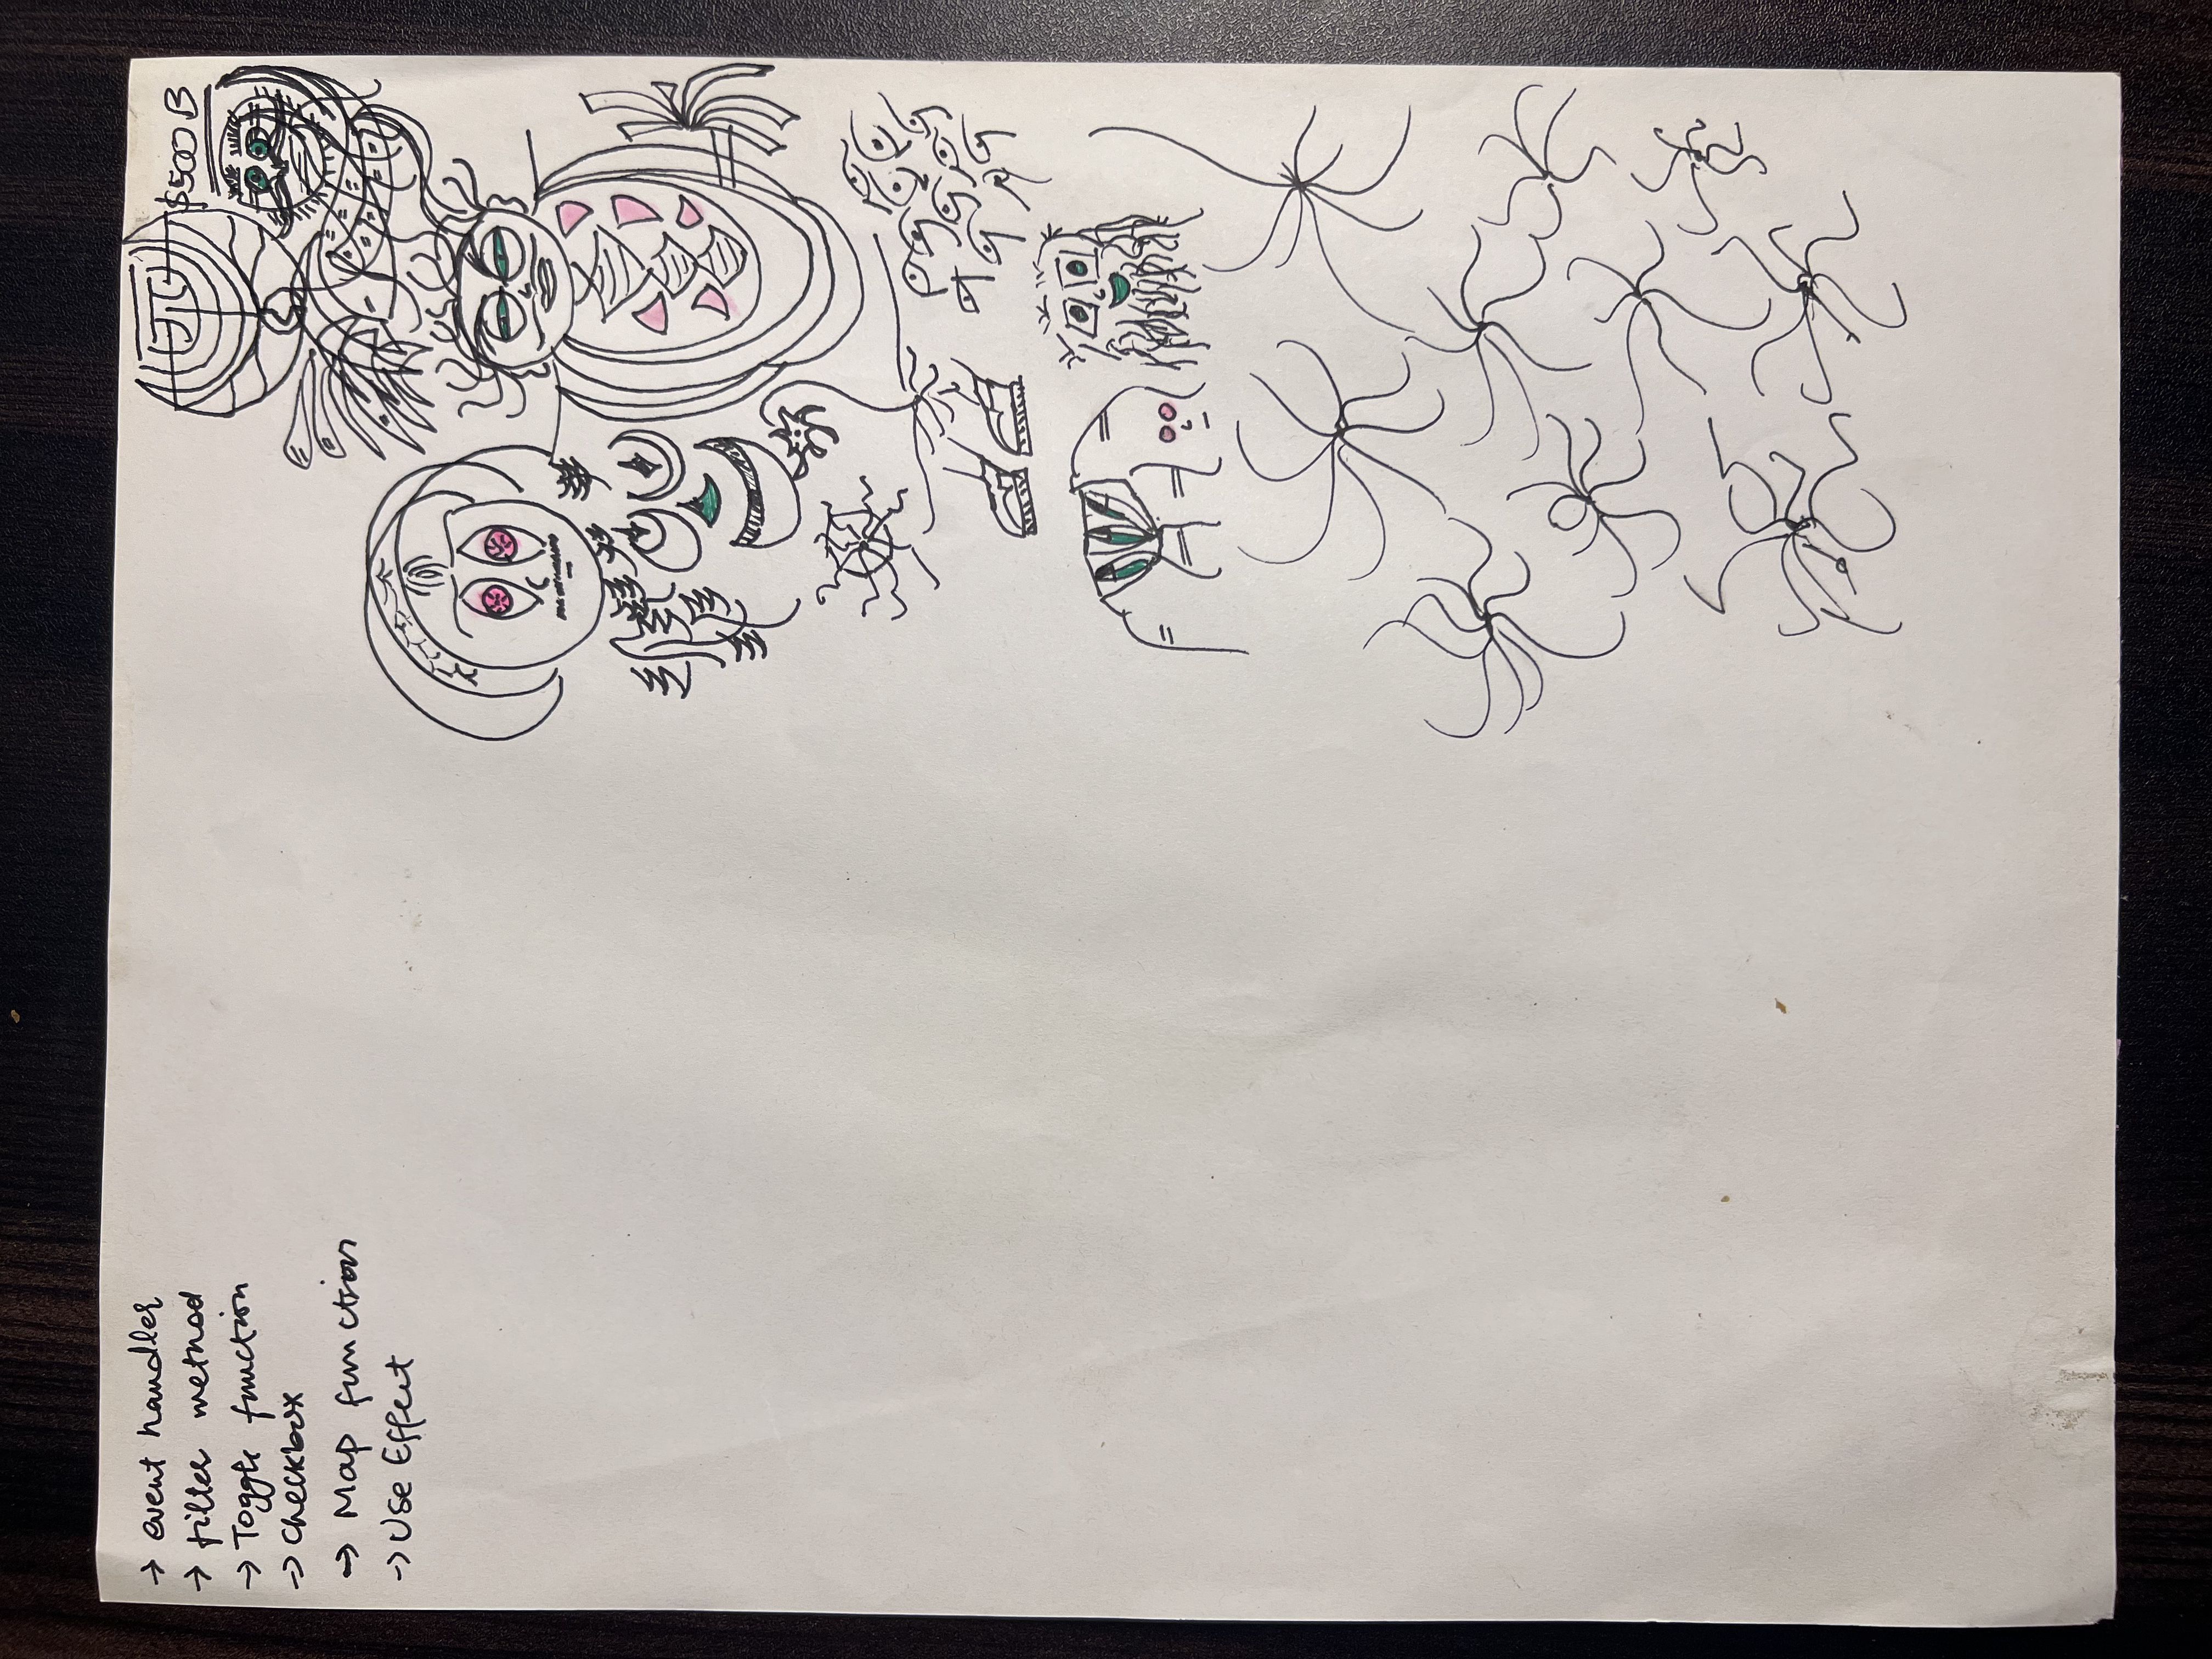 → event handler
→ filter method
→ Toggle function
→ Checkbox
→ Map function
→ Use Effect
$500 B